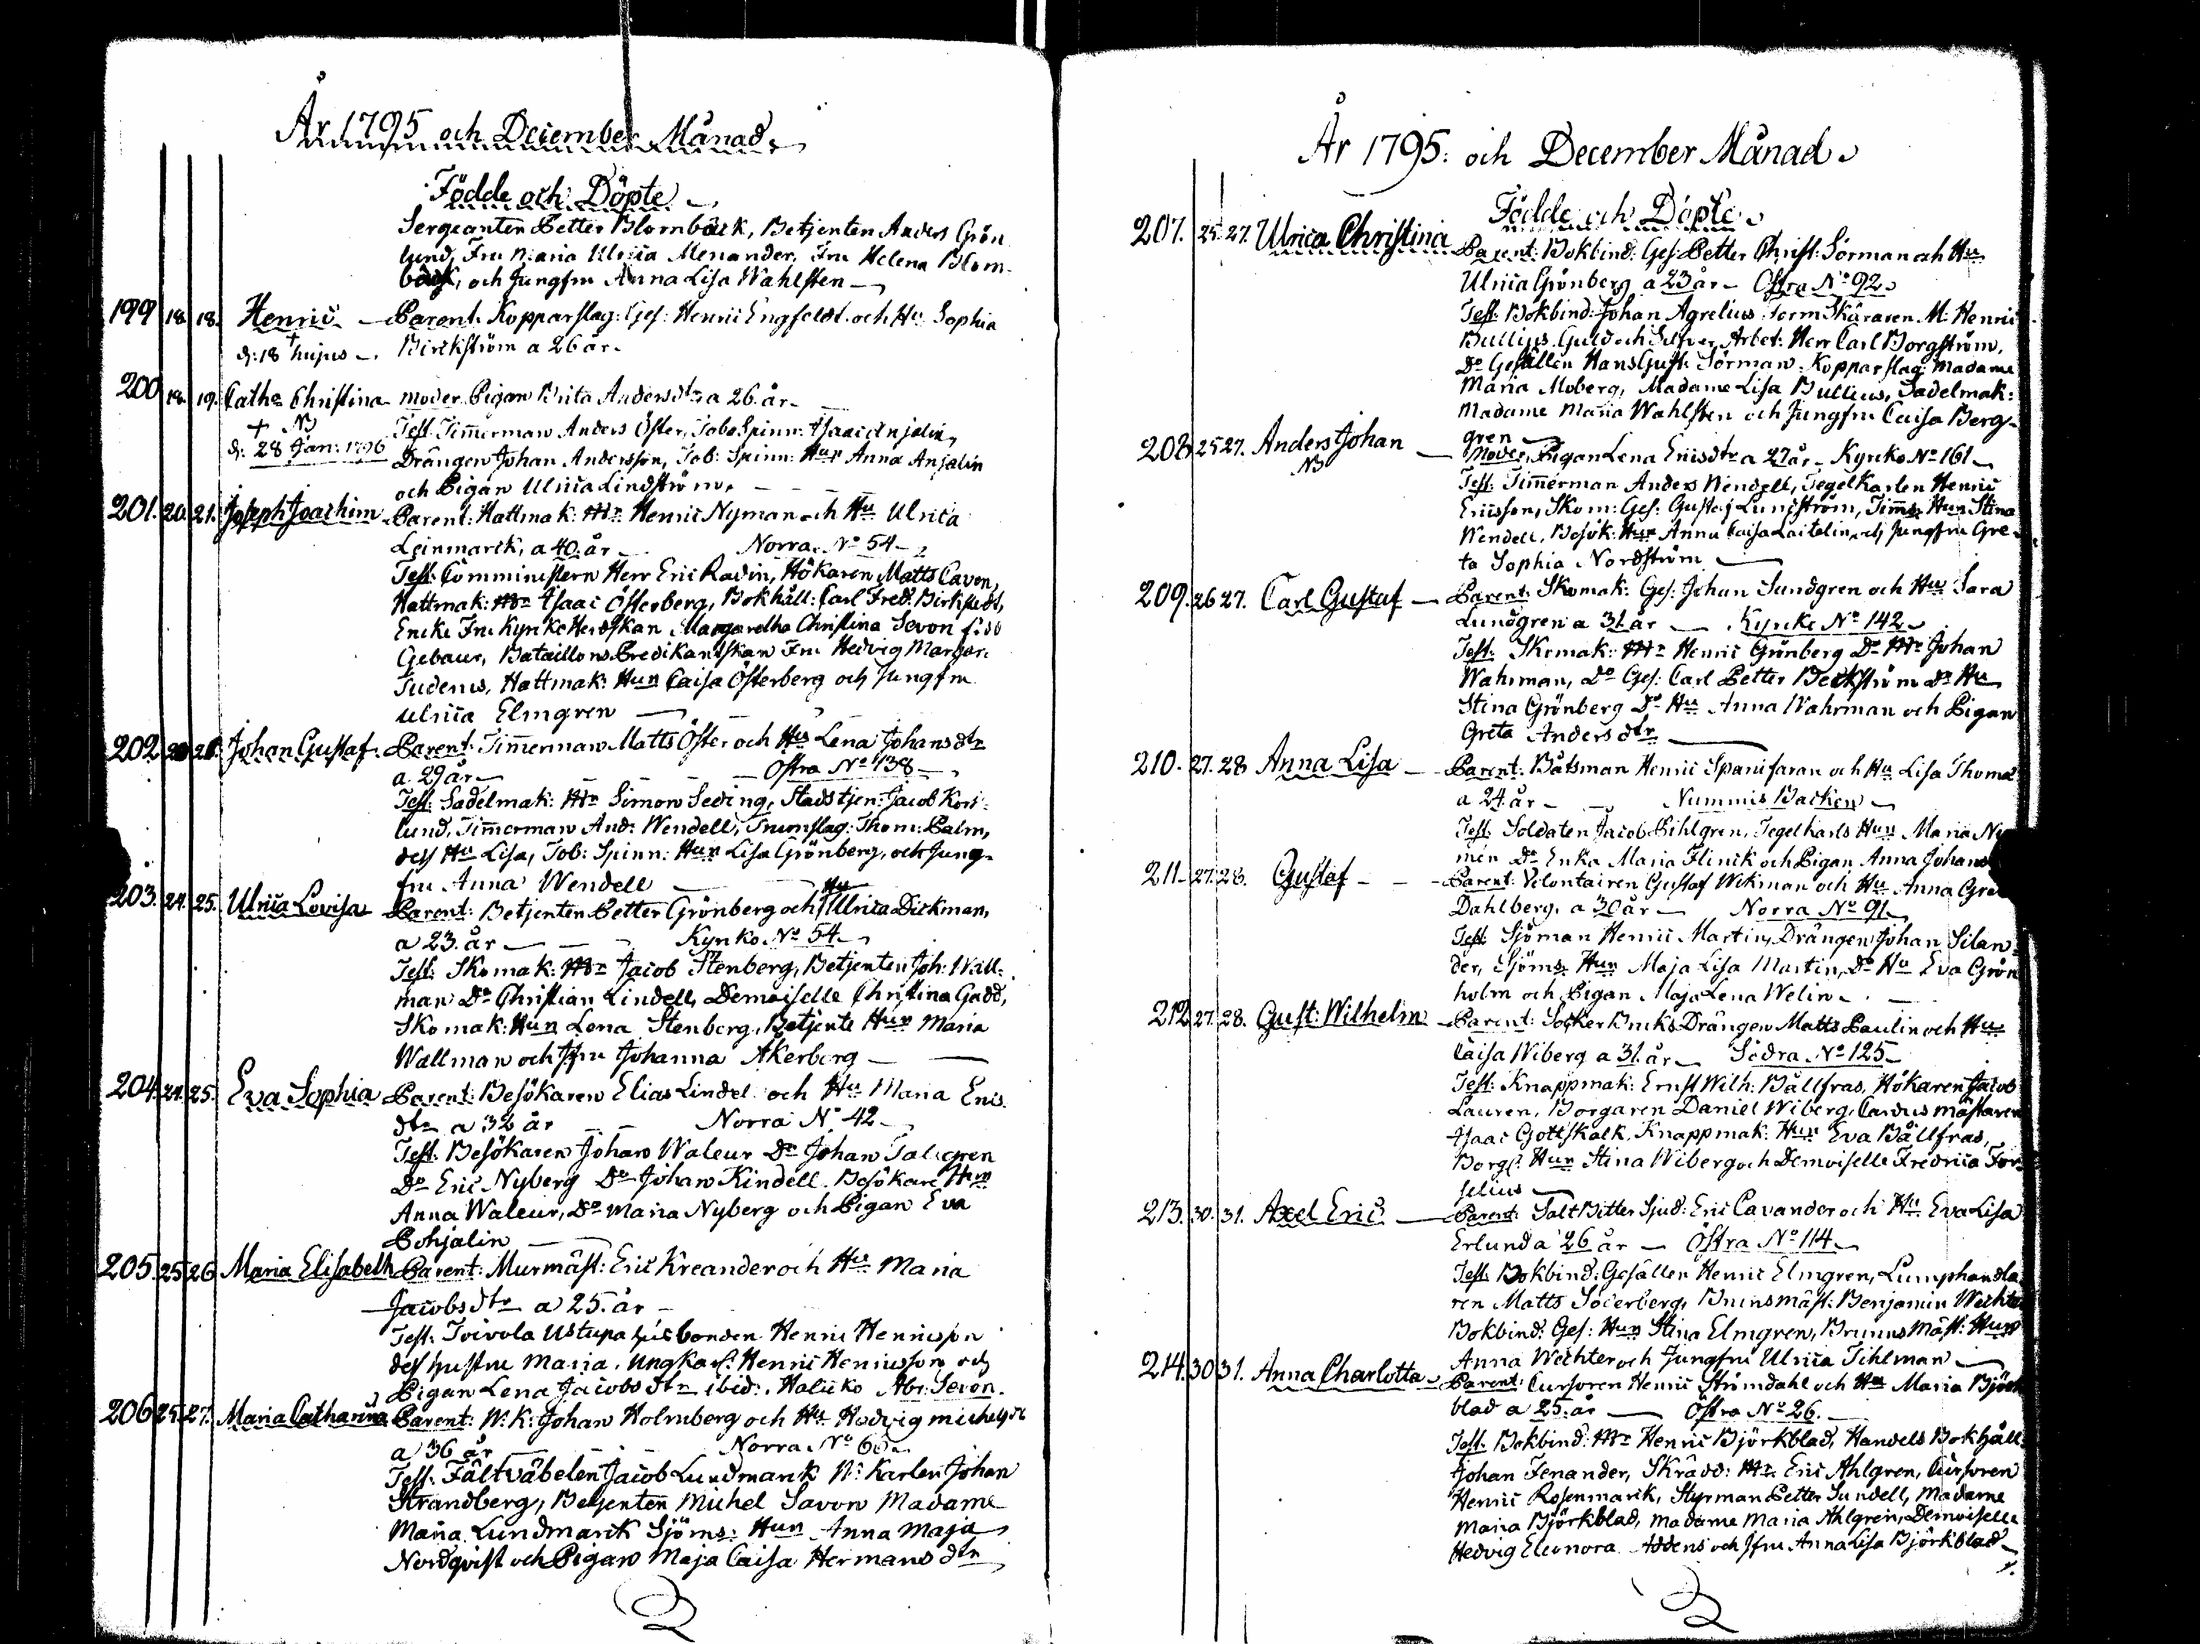 År 1795 och December Månad.
Födde och Döpte
Sergeanten Petter Blombäck, Betjenten Anders Grön
lund, Fru Maria Ulrica Menander, Fru Helena Blom-
bäck, och Jungfru Anna Lisa Wahlsten
199 18. 18. Henric Parent: Kopparslag: Ges: Henric Engfeldt och Hu Sophia
d: 18 hujus Birckström a 26 år.
200 18. 19. Catha Christina moder Pigan Brita Andersdtr a 26 år.
+ NB Test. Timmerman Anders Öster, Tobs Spinn: Isaac Anjelin,
d: 28 Jan: 1796 Drängen Johan Andersson, Tob: Spinn: Hun Anna Anjelin
och Pigan Ulrica Lindström.
201. 20. 21. Joseph Joachim Parent: Hattmak: Mr Henric Nyman och Hu Ulrica
Leinmarck, a 40 år Norra No 54
Test: Comministern Herr Eric Radin, Hökaren Matts Cavon,
Hattmak: Mr Isaac Österberg, Bokhåll: Carl Fred: Birkstedt,
Encke Fru Kyrkoherdskan Margaretha Christina Sevon född
Gebaur, Bataillons Predikantskan Fru Hedvig Margar:
Tudenus, Hattmak: Hun Caisa Österberg och Jungfru
Ulrica Elmgren
202 20 21. Johan Gustaf Parent: Timmerman Matts Öster och Hu Lena Johansdtr
a 29 år Östra No 138
Test: Sadelmak: Mr Simon Seding, Stads tjen: Jacob Kors-
lund, Timmerman And: Wendell, Trumslag: Thom: Palm,
dess Hu Lisa, Tob: Spinn: Hun Lisa Grönberg, och Jung-
fru Anna Wendell
203. 24. 25. Ulrica Lovisa Parent: Betjenten Petter Grönberg och Hu Ulrica Dickman,
a 23 år Kyrko No 54
Test: Skomak: Mr Jacob Stenberg, Betjenten Joh: Wall-
man Do Christian Lindell, Demoiselle Christina Gadd,
Skomak: Hun Lena Stenberg, Betjente Hun Maria
Wallman och Jfru Johanna Åkerberg
204. 24. 25. Eva Sophia Parent: Besökaren Elias Lindel och Hu Maria Erics
dtr a 32 år Norra No 42
Test: Besökaren Johan Waleur Do Johan Talegren
Do Eric Nyberg Do Johan Kindell. Besökare Hun
Anna Waleur, Do Maria Nyberg och Pigan Eva
Pohjalin
205. 25 26 Maria Elisabeth Parent: Murmäst: Eric Kreander och Hu Maria
Jacobsdtr a 25. år
Test: Toivola Ustupa husbonden Henric Henricsson
dess hustru Maria, Ungkarl: Henric Henricsson och
Pigan Lena Jacobsdtr ibid:, Haliko Abr: Sevon.
206 25. 27. Maria Catharina Parent: W: K: Johan Holmberg och Hu Hedvig Michelsdt
a 36 år Norra No 60
Test: Fältväbelen Jacob Lundmarck W: Karlen Johan
Strandberg, Betjenten Michel Savon Madame
Maria Lundmarck Sjöms: Hun Anna Maja
Nordqvist och Pigan Maja Caisa Hermansdtr
År 1795. och December Månad
Födde och Döpte
207. 25. 27. Ulrica Christina Parent: Bokbind: Ges: Petter Christ: Sörman och Hu
Ulrica Grönberg a 23 år Östra No 92
Test: Bokbind: Johan Agrelius, Formskäraren M: Henric
Bullius, Guld och Silfver Arbet: Herr Carl Borgström,
Do Gesällen Hans Gust: Sörman, Kopparslag: Madame
Maria Moberg, Madame Lisa Bullius, Sadelmak:
Madame Maria Wahlsten och Jungfru Caisa Berg-
gren
208 25 27. Anders Johan Moder, Pigan Lena Ericsdtr a 27 år Kyrko No 161
NB Test: Timmerman Anders Wendell, Tegelkarlen Henric
Ericsson, Skom: Ges: Gustaf Lundström, Timms: Hun Stina
Wendell, Besök: Hun Anna Caisa Laitelin, och Jungfru Gre-
ta Sophia Nordström
209. 26 27. Carl Gustaf Parent: Skomak: Ges: Johan Sundgren och Hu Sara
Lundgren a 31 år Kyrko No 142
Test: Skomak: Mr Henric Grönberg Do Mr Johan
Wahrman, Do Ges: Carl Petter Beckström Do Hu
Stina Grönberg Do Hu Anna Wahrman och Pigan
Greta Andersdtr
210. 27. 28 Anna Lisa Parent: Båtsman Henric Spanifaran och Hu Lisa Thomæ
a 24 år Nummis Backen
Test: Soldaten Jacob Pihlgren, Tegelkarls Hun Maria Ny
mén Do Enka Maria Flinck och Pigan Anna Johans
211. 27. 28. Gustaf Parent: Volontairen Gustaf Wikman och Hu Anna Gre
Dahlberg, a 30 år Norra No 91
Test: Sjöman Henric Martin, Drängen Johan Silan-
der, Sjöms: Hun Maja Lisa Martin, Do Hu Eva Grön
holm och Pigan Maja Lena Welin
212 27. 28. Gust: Wilhelm Parent: Socker Bruks Drängen Matts Paulin och Hu
Caisa Wiberg a 31 år Södra No 125
Test: Knappmak: Ernst Wilh: Bållfras, Hökaren Jacob
Lauren, Borgaren Daniel Wiberg, Cardus mästaren
Isaac Gottskalk, Knappmak: Hun Eva Bållfras,
Borgs: Hun Stina Wiberg och Demoiselle Fredrica For-
selius
213. 30. 31. Axel Eric Parent: Salt Pitter Sjud: Eric Cavander och Hu Eva Lisa
Erlund a 26 år Östra No 114
Test: Bokbind: Gesällen Henric Elmgren, Lumphandla
ren Matts Söderberg, Brunsmäst: Benjamin Wechter
Bokbind: Ges: Hun Stina Elmgren, Brunns Mäst: Hun
Anna Wechter och Jungfru Ulrica Tihlman
214. 30 31. Anna Charlotta Parent: Cursoren Henric Strömdahl och Hu Maria Björk
blad a 25 år Östra No 26.
Test: Bokbind: Mr Henric Björkblad, Handels Bokhåll:
Johan Fenander, Skrädd: Mr Eric Ahlgren, Cursoren
Henric Rosenmarck, Styrman Petter Sundell, Madame
Maria Björkblad, Madame Maria Ahlgren, Demoiselle
Hedvig Eleonora Addens och Jfru Anna Lisa Björkblad